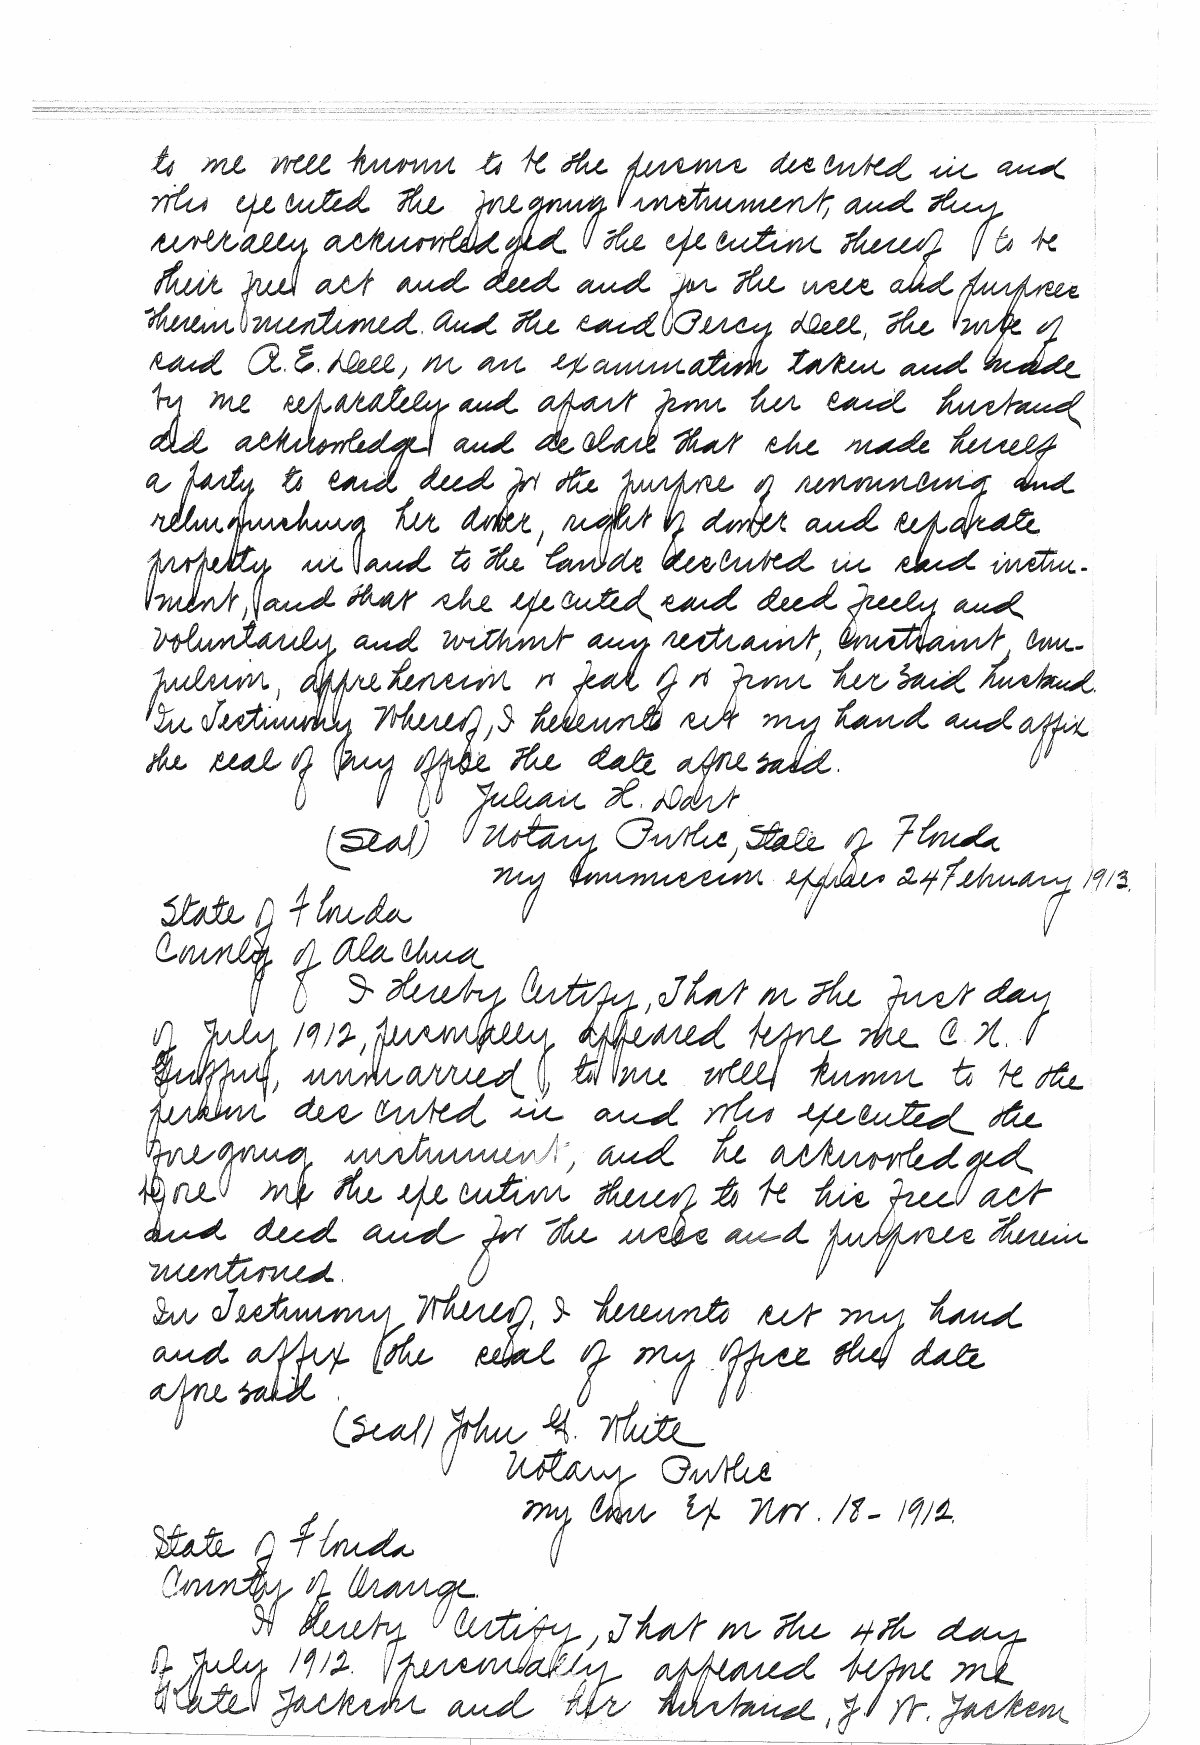 to me well known to be the persons described in and
who executed the foregoing instrument, and they
severally acknowledged the execution thereof to be
their free act and deed and for the uses and purposes
therein mentioned. And the said Percy Dell, the wife of
said A. E. Dell, on an examination taken and made
by me separately and apart from her said husband
did acknowledge and declare that she made herself
a party to said deed for the purpose of renouncing and
relinquishing her dower, right of dower and separate
property in and to the lands described in said instru-
ment, and that she executed said deed freely and
voluntarily and without any restraint, constraint, com-
pulsion, apprehension or fear of or from her said husband.
In Testimony Whereof, I hereunto set my hand and affix
the seal of my office the date aforesaid.
Julian H. Dart
(Seal) Notary Public, State of Florida
My Commission expires 24 February 1913.
State of Florida
County of Alachua
I Hereby Certify, That on the first day
of July 1912, personally appeared before me C. N.
unmarried, to me well known to be the
person described in and who executed the
foregoing instrument, and he acknowledged
before me the execution thereof to be his free act
and deed and for the uses and purposes therein
mentioned.
In Testimony Whereof, I hereunto set my hand
and affix the seal of my office the date
aforesaid.
(Seal) John G. White
Notary Public
My Com Ex Nov. 18 - 1912.
State of Florida
County of Orange.
I Hereby Certify, That on the 4th day
of July 1912. personally appeared before me
Kate Jackson and her husband, J. W. Jackson